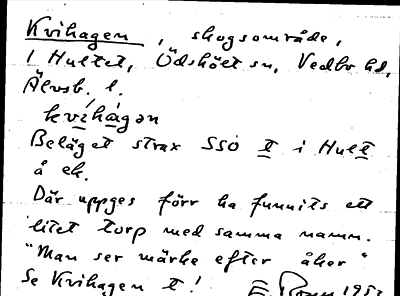 Kvihagen, skogsområde,
i Hultet, Ödskölt sn, Vedbo hd,
Älvsb. l.
kvíhàgən
Beläget strax SSO t i Hult
å ek.
Där uppges förr ha funnits ett
litet torp med samma namn.
"Man ser märke efter åker"
Se Kvihagen t!